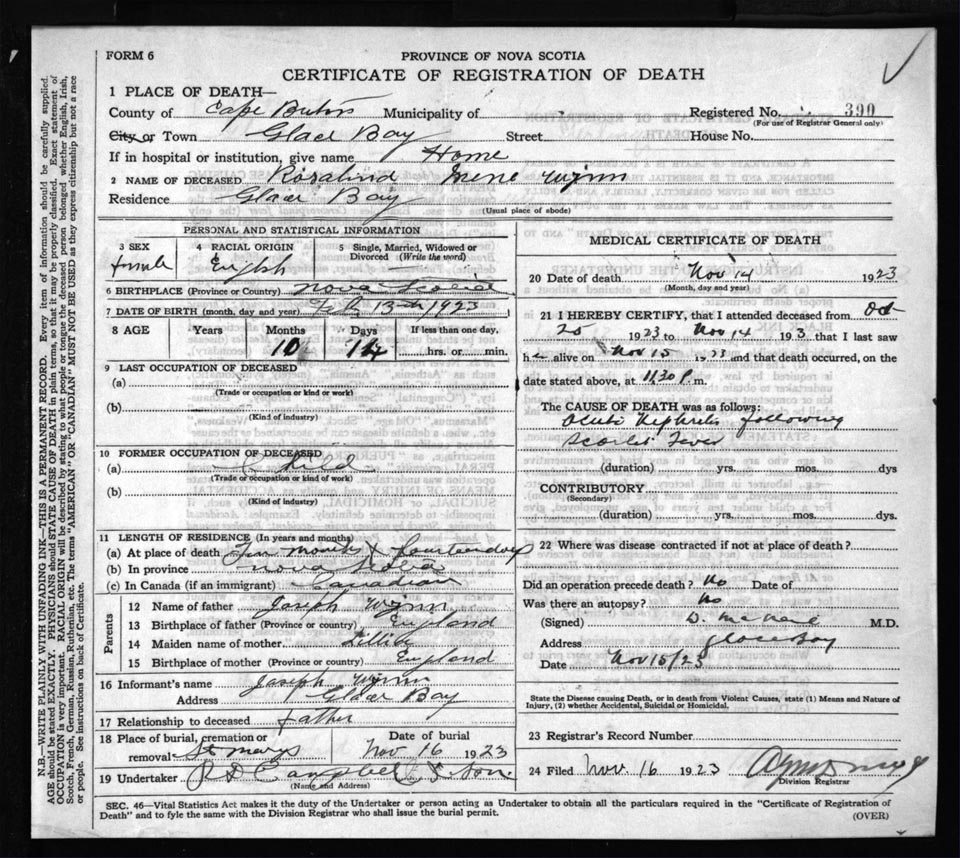 FORM 6
PROVINCE OF NOVA SCOTIA
CERTIFICATE OF REGISTRATION OF DEATH
1 PLACE OF DEATH—
County of Cape Municipality of Registered No. 390
(For use of Registrar General only)
City or Town Glace Bay Street House No.
If in hospital or institution, give name Home
2 NAME OF DECEASED Rosalind Irene Wynn
Residence Glace Bay
(Usual place of abode)
PERSONAL AND STATISTICAL INFORMATION
3 SEX
female
4 RACIAL ORIGIN
English
5 Single, Married, Widowed or Divorced (Write the word)
6 BIRTHPLACE (Province or Country) Nova Scotia
7 DATE OF BIRTH (month, day and year) 13th 1923
8 AGE Years Months Days If less than one day,
10 14 hrs. or min.
9 LAST OCCUPATION OF DECEASED
(a)
(Trade or occupation or kind or work)
(b)
(Kind of industry)
10 FORMER OCCUPATION OF DECEASED
(a) Child
(Trade or occupation or kind or work)
(b)
(Kind of industry)
11 LENGTH OF RESIDENCE (In years and months)
(a) At place of death months & fourteen days
(b) In province Nova Scotia
(c) In Canada (if an immigrant) Canadian
Parents
12 Name of father Joseph Wynn
13 Birthplace of father (Province or country) England
14 Maiden name of mother
15 Birthplace of mother (Province or country) England
16 Informant's name Joseph Wynn
Address Glace Bay
17 Relationship to deceased father
18 Place of burial, cremation or removal St Marys
Date of burial
Nov 16 1923
19 Undertaker Campbell & Son
(Name and Address)
MEDICAL CERTIFICATE OF DEATH
20 Date of death Nov 14 1923
(Month, day and year)
21 I HEREBY CERTIFY, that I attended deceased from Oct
20 1923 to Nov 14 1923 that I last saw
h alive on Nov 15 1923 and that death occurred, on the
date stated above, at 11.30 P. m.
The CAUSE OF DEATH was as follows:
Acute Nephritis following
Scarlet Fever
(duration) yrs. mos. dys
CONTRIBUTORY
(Secondary)
(duration) yrs. mos. dys.
22 Where was disease contracted if not at place of death?
Did an operation precede death? No Date of
Was there an autopsy? No
(Signed) D. M.D.
Address Glace Bay
Date Nov 15/23
State the Disease causing Death, or in death from Violent Causes, state (1) Means and Nature of
Injury, (2) whether Accidental, Suicidal or Homicidal.
23 Registrar's Record Number
24 Filed Nov. 16 1923
Division Registrar
SEC. 46—Vital Statistics Act makes it the duty of the Undertaker or person acting as Undertaker to obtain all the particulars required in the "Certificate of Registration of
Death" and to fyle the same with the Division Registrar who shall issue the burial permit.
(OVER)
N.B.—WRITE PLAINLY WITH UNFADING INK—THIS IS A PERMANENT RECORD. Every item of information should be carefully supplied.
AGE should be stated EXACTLY. PHYSICIANS should STATE CAUSE OF DEATH in plain terms, so that it may be properly classified. Exact statement of
OCCUPATION is very important. RACIAL ORIGIN will be described by stating to what people or tongue the deceased person belonged whether English, Irish,
Scotch, French, German, Russian, Ruthenian, etc. The terms "AMERICAN" OR "CANADIAN" MUST NOT BE USED as they express citizenship but not a race
or people. See instructions on back of Certificate.